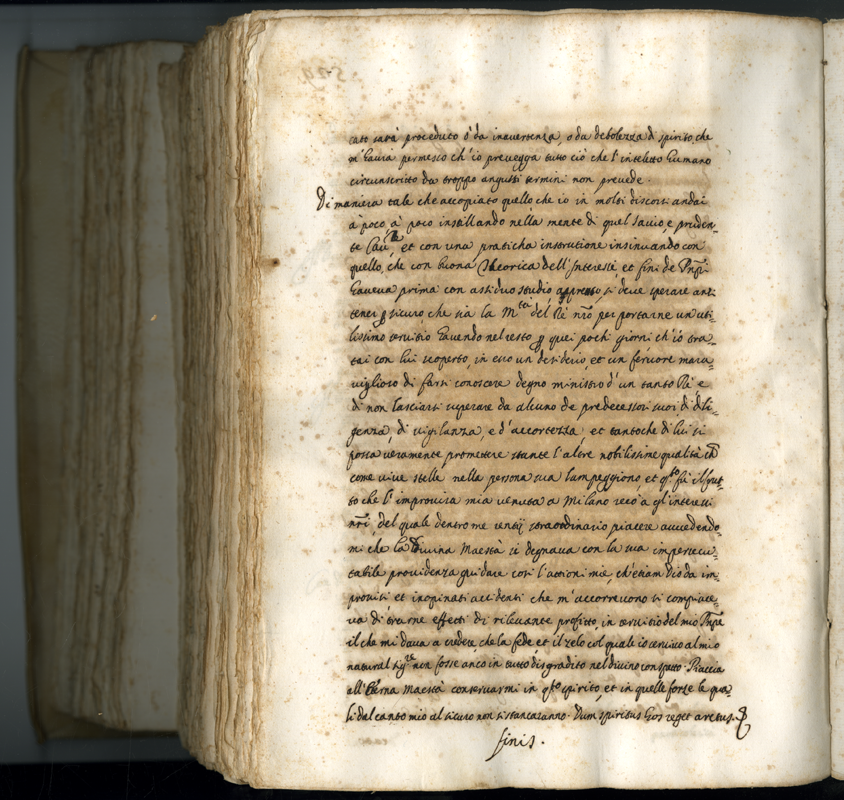 cato sarà proceduto ò da inavertenza, o da debolezza di spirito, che
m'havrà permesso ch'io prevegga tutto ciò che l'intelletto humano
circunscritto da troppo angusti termini non prevede.
Di maniera tale che accopiato quello che io in molti discorsi andai
à poco, à poco instillando nella mente di quel savio, e pruden-
te Cav.re, et con una praticha instrutione insinuando con
quello, che con buona Theorica dell'Interesse, et fini de Pnpi
haveva prima con assiduo studio appreso, si deve sperare anzi
tener p sicuro che sia la M.tà del Rè nrõ per portarne un uti-
lissimo servitio havendo nel resto p quei pochi giorni ch'io tra-
tai con lui scoperto, in esso un desiderio, et un fervore mara-
viglioso di farsi conoscere degno ministro d'un tanto Rè e
di non lasciarsi superare da alcuno de predecessori suoi di dili-
genza, di vigilanza, e d'accortezza, et tanto che di lui si
possa veramente promettere stante l'altre nobilissime qualità ch
come vive stelle nella persona sua lampeggiono et q.to fù il frut-
to che l'improvisa mia venuta a Milano recò à gl'interessi
nrĩ, del quale dentro me sentij straordinario piacere avvedendo-
mi che la Divina Maestà si degnava con la sua imperscru-
tabile providenza guidare cosi l'attioni mie, ch'etiam Dio da im-
provisi et inopinati accidenti che m'accorrevono si compiace-
va di trarne effetti di rilevante profitto, in servitio del mio Pnpe
il che mi dava a credere che la fede et il zelo col quale io servivo al mio
natural Sig.re non fosse anco in tutto disgradito nel divino conspetto. Piaccia
all'Eterna Maestà conservarmi in q.to spirito, et in quelle forze le qua-
li dal canto mio al sicuro non si stancaranno. Dum spiritus hos reget artus.
finis.